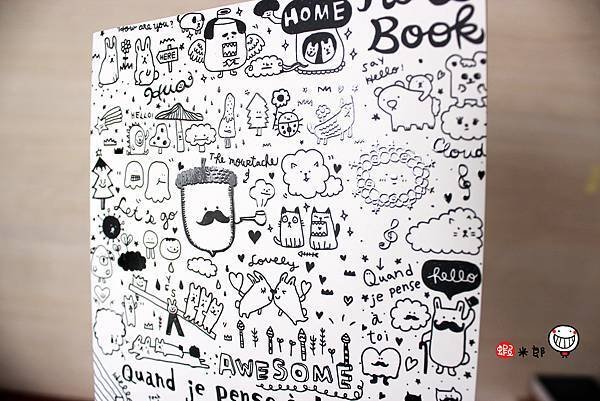 How are you?
HOME
Book
HERE
SAY
Hello!
Hua
HELLO!
The moustache
Cloud
Let's go
Lovely
Quand
je pense
à
toi
hello
AWESOME
Quand je pense à
蝦米郎